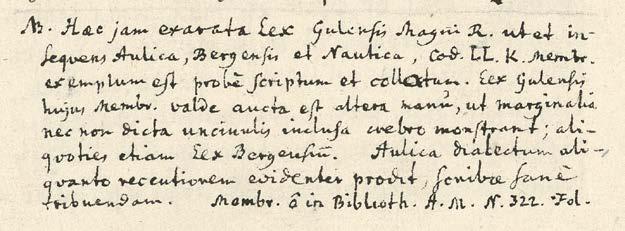 NB. Hæc jam exarata Lex Gulensis Magni R. ut et in-
sequens Aulica, Bergensis et Nautica, Cod. LL. K. Membr.
exemplum est probè scriptum et collatum. Lex Gulensis
hujus Membr. valde aucta est altera manu, ut marginalia
nec non dicta unciunulis inclusa crebro monstrant; ali-
quoties etiam Lex Bergensiū. Aulica dialectum ali-
quanto recentiorem evidenter prodit, scribæ sanè
tribuendam. Membr. â in Biblioth. A. M. N. 322. Fol.